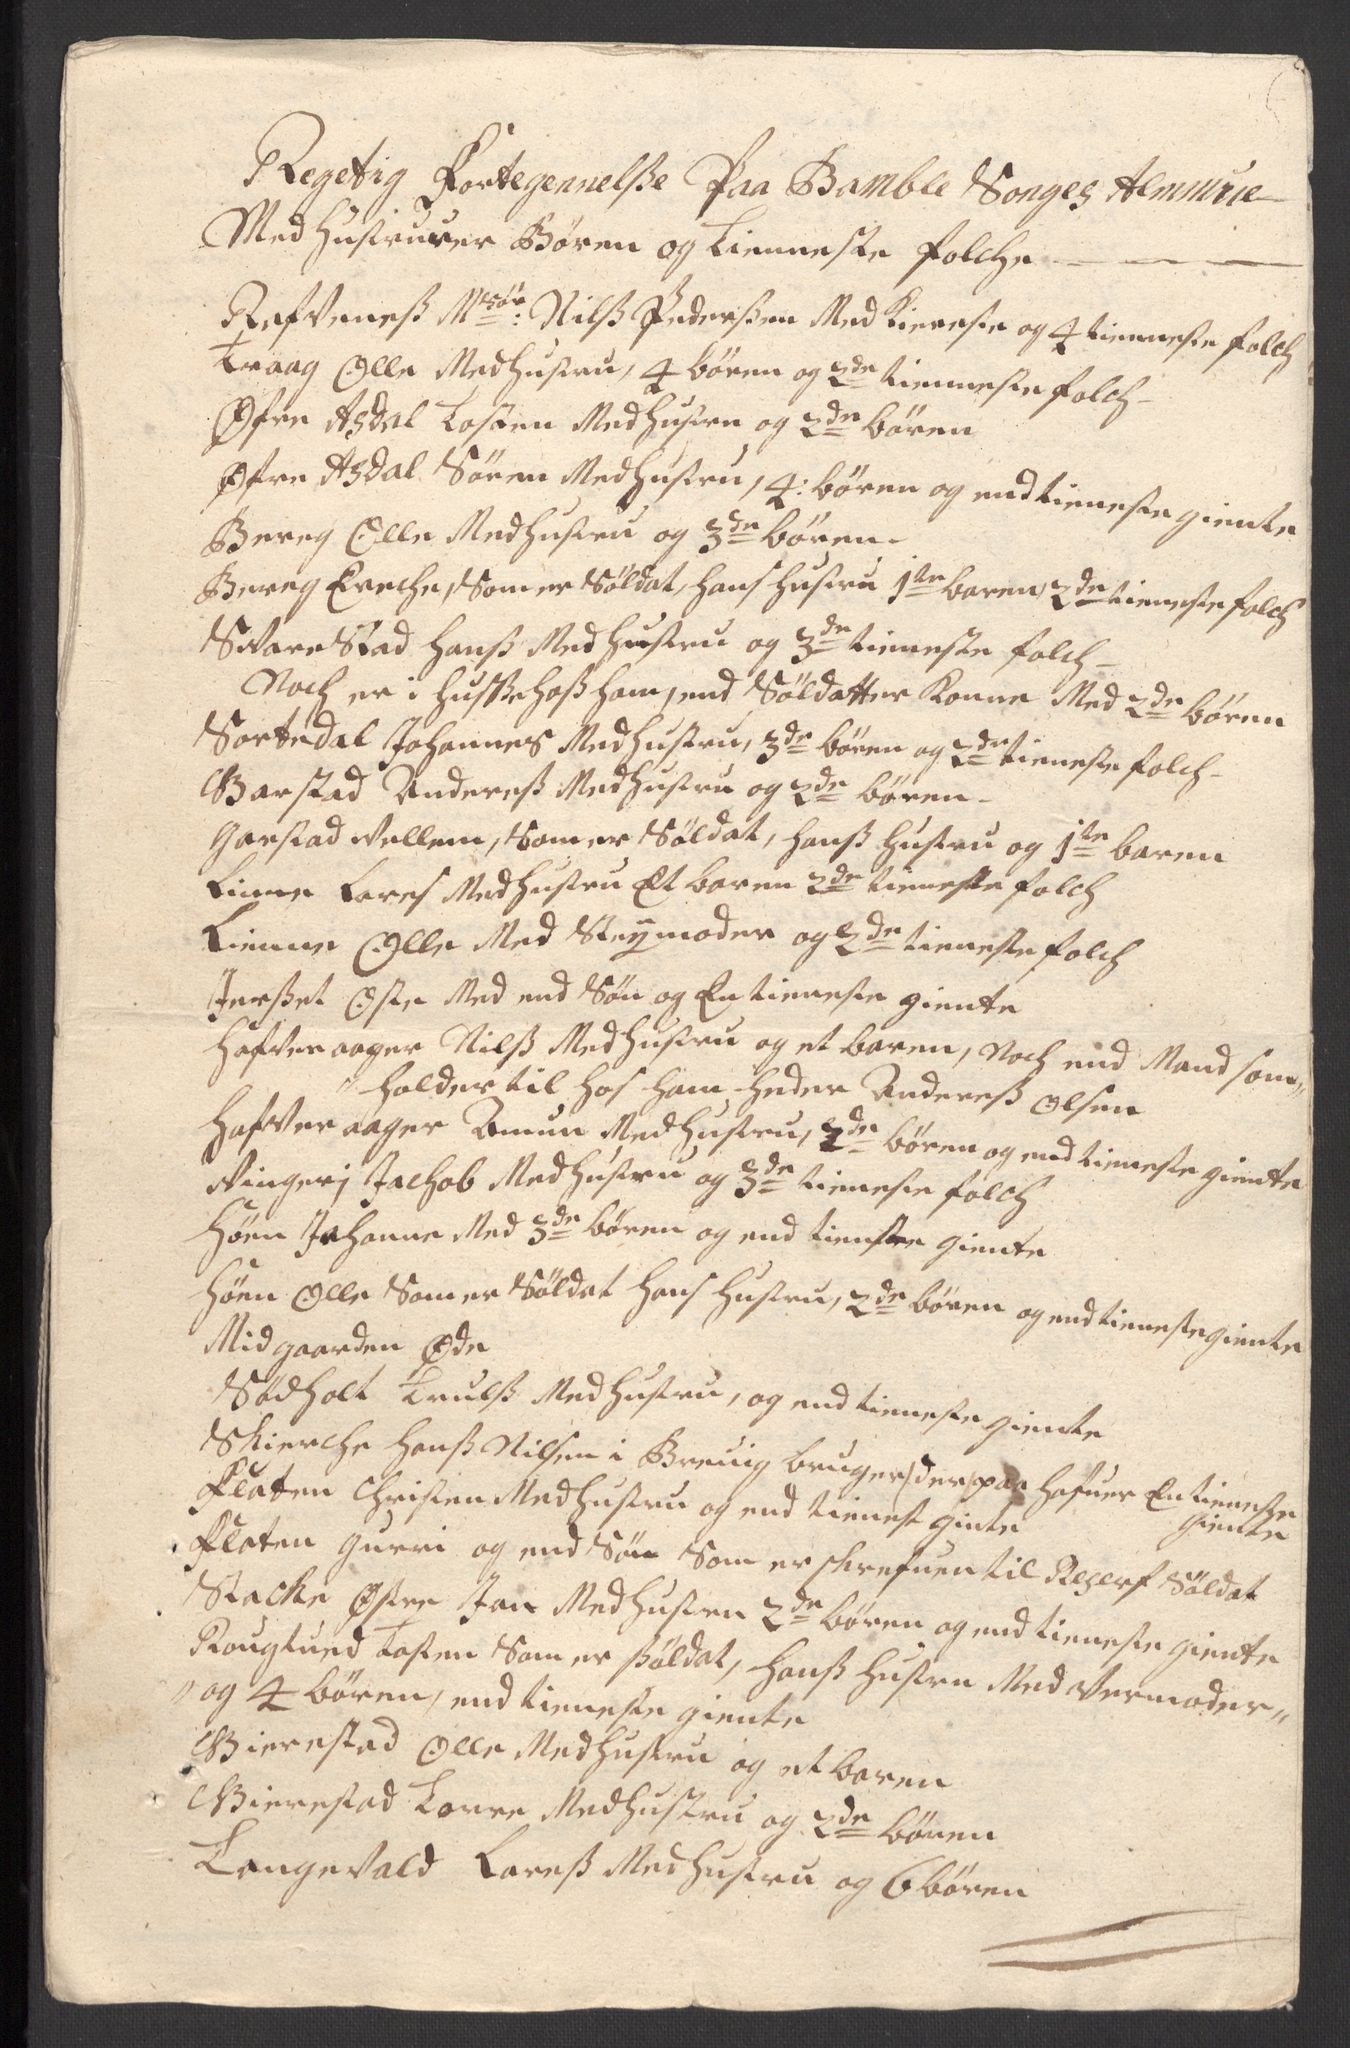 Regetig Fortegennelsße Paa Bamble Songes Almuue
Med Hustruuer Børen og tienneste folche
Refveneß Msör: Nilß Pederßen Med Kiereste og 4 tienneste folch
Kraag Olle Med Hustru, 4 børen og 2de tienneste folch
Øfre Asdal Tosten Med Hustru og 2de børen
Øfre Asdal Søren Med Hustru, 4: børen og end tieneste giente
Bereg Olle Med Hustru og 3de børen
Bereg Ereche, Som er Søldat, hans hustru 1te baren, 2de tieneste folch
Svarestad Hanß Med Hustru og 3de tieneste folch
Noch er i Husße hoß ham, end Søldatter Konne Med 2de børen
Sortedal Johannes Med Hustru, 3de børen og 2de tieneste folch
Garstad Andereß Med Hustru og 2de børen
Garstad Vellem, Som er Søldat, hanß hustru og 1te baren
Linne Lares Med Hustru Et baren 2de tieneste folch
Lienne Olle Med Steymoder og 2de tieneste folch
Jerßet Oste Med end Søn og En tieneste giente
Hafver aager Nilß Med Hustru og et baren, Noch end Mand som
holder til hos ham heder Andereß Olsen
Hafver aager Amun Med Hustru, 2de børen og end tieneste giente
Vingerj Jachob Med Hustru og 3de tieneste folch
Høen Johanne Med 3de børen og end tienste giente
Høen Olle Som er Søldat Hans Hustru, 2de børen og end tieneste giente
Midgaarden Øde
Sødholt Trulß Med Hustru, og end tieneste giente
Skierche Hanß Nilsen i Breuig bruger, der paa hafuer En tieneste
giente
Flaten Christen Med Hustru og end tienest ginte
Flaten Gurri og end Søn Som er skrefuen til Reserf Søldat
Stacke Østre Jan Med Hustru 2de børen og end tieneste giente
Rougtued Tosten Som er ßøldat, Hanß Hustru Med Vermoder
og 4 børen, end tieneste giente
Gierestad Olle Med Hustru og et baren
Gierestad Torre Med Hustru og 2de børen
Langevald Lareß Med Hustru og 6 børen